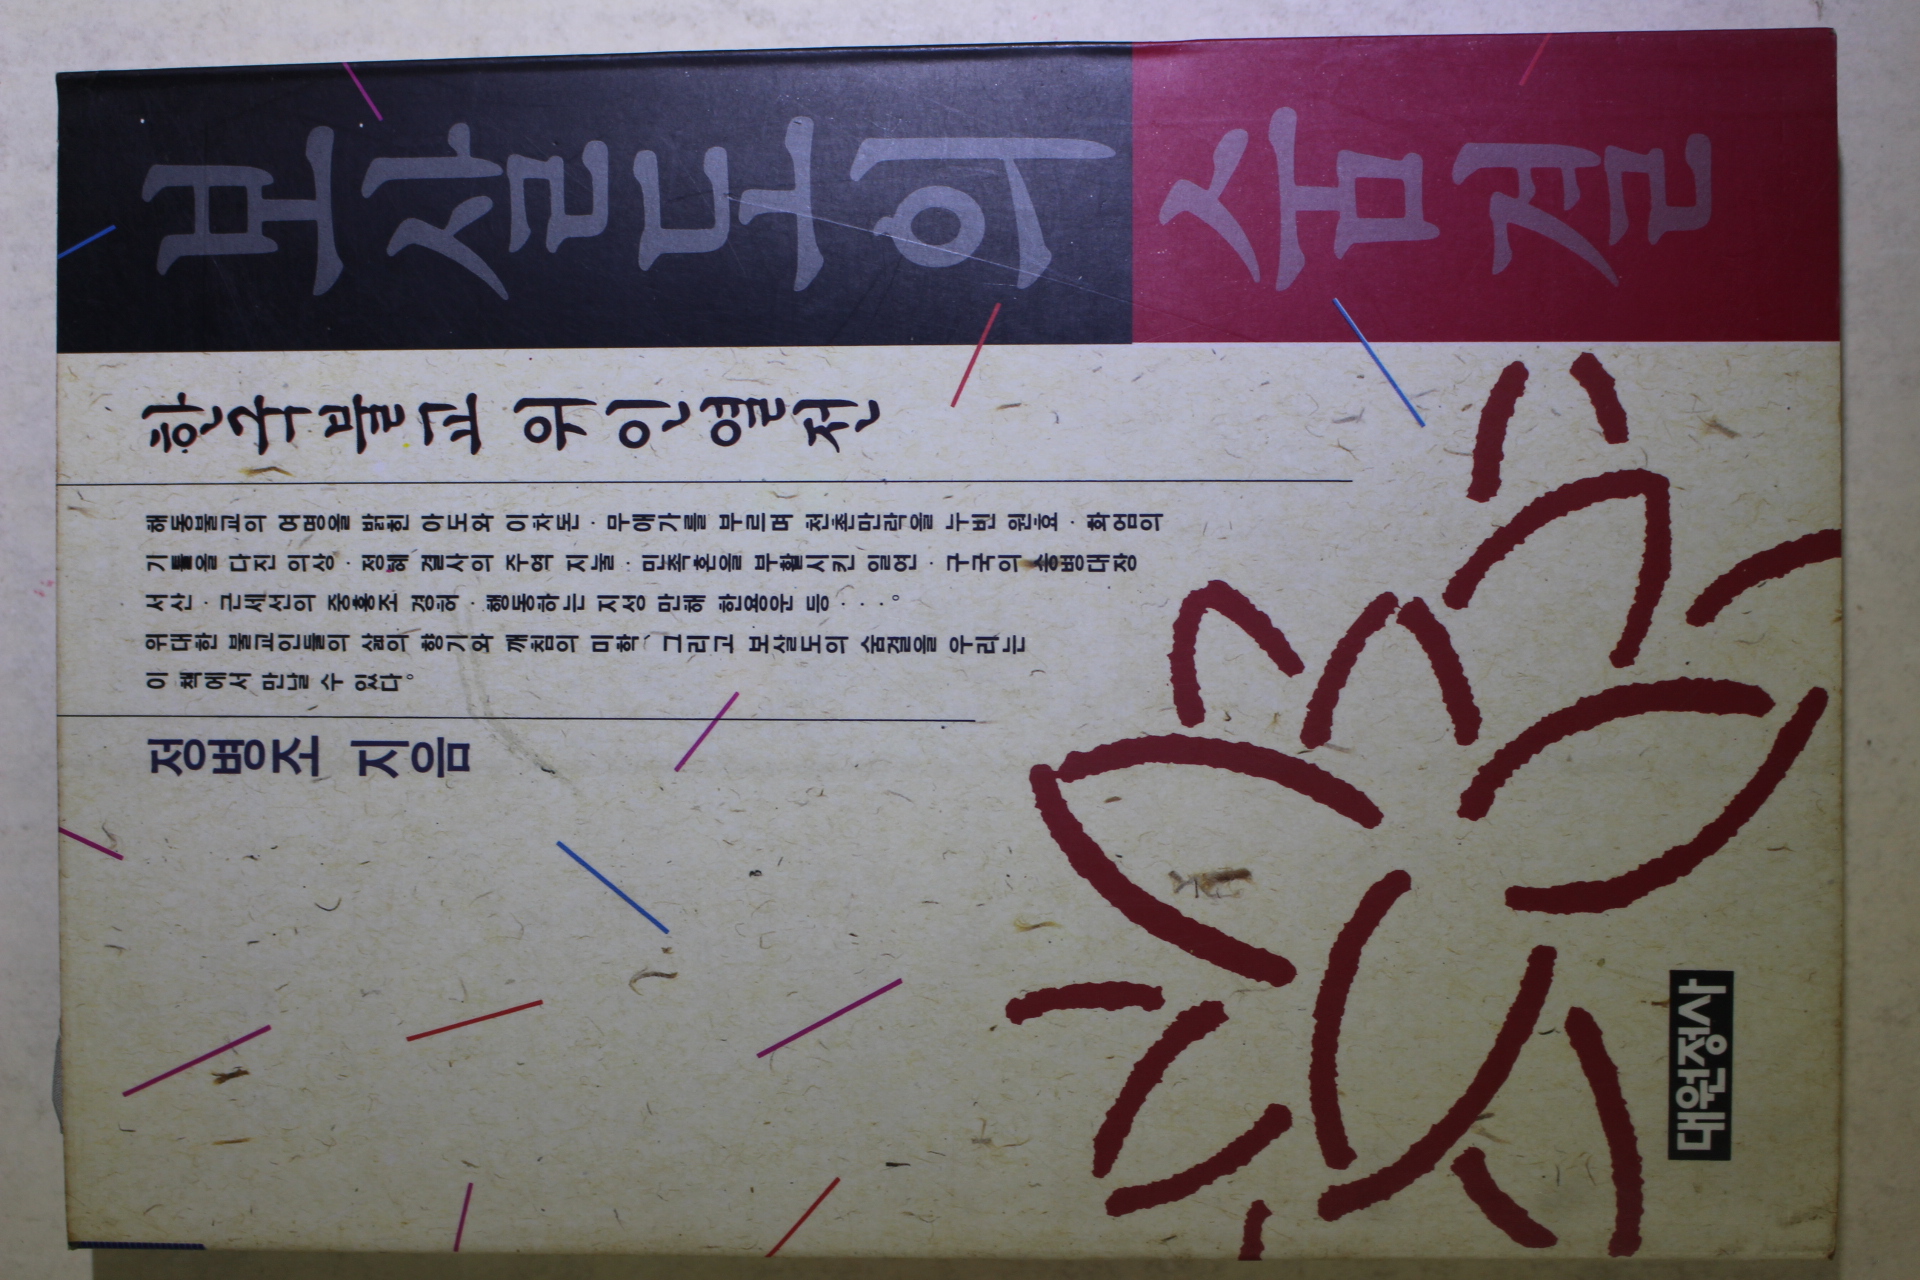 보살도의 숨결
한국불교 위인열전
해동불교의 여명을 밝힌 아도와 이차돈 · 무애가를 부르며 천촌만락을 누빈 원효 · 화엄의
기틀을 다진 의상 · 정혜 결사의 주역 지눌 · 민족혼을 부활시킨 일연 · 구국의 승병대장
서산 · 근세선의 중흥조 경허 · 행동하는 지성 만해 한용운 등 · · · 。
위대한 불교인들의 삶의 향기와 깨침의 미학、그리고 보살도의 숨결을 우리는
이 책에서 만날 수 있다。
정병조 지음
대원정사